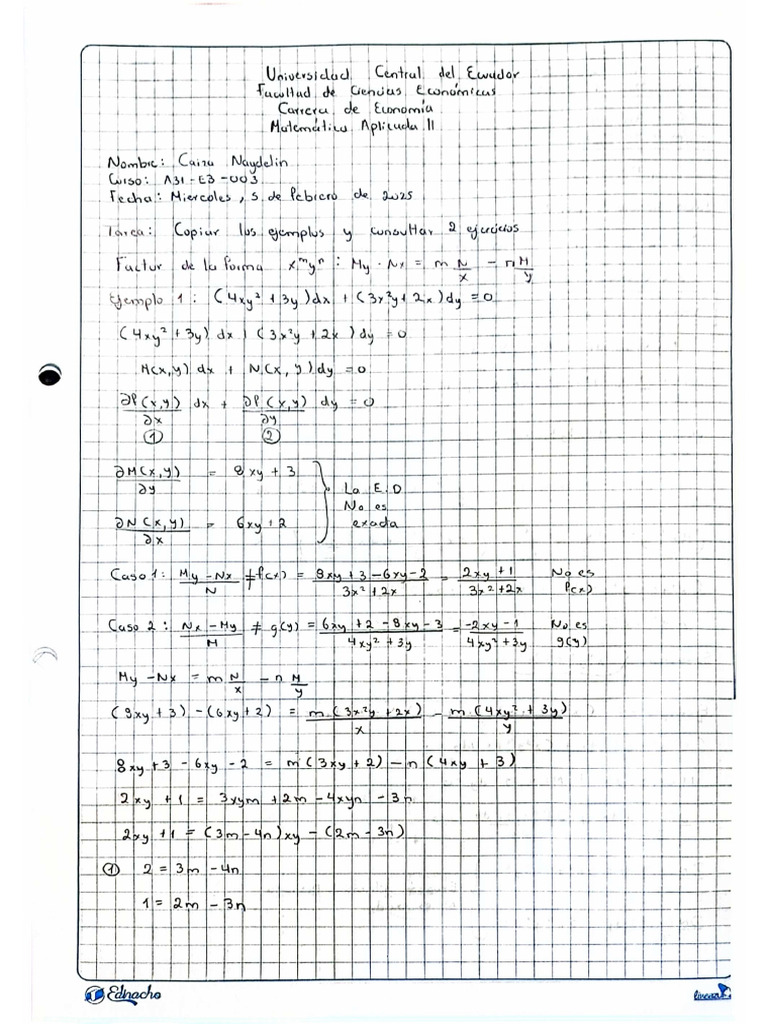 Universidad Central del Ecuador
Facultad de Ciencias Económicas
Carrera de Economía
Matemática Aplicada II
Nombre: Caiza Naydelin
Curso: A31-E3-003
Fecha: Miercoles, 5 de febrero de 2025
Tarea: Copiar los ejemplos y consultar 2 ejercicios
Factor de la forma x^m y^n : My - Nx = m N/x - n M/y
Ejemplo 1: (4xy² + 3y)dx + (3x²y + 2x)dy = 0
(4xy² + 3y) dx + (3x²y + 2x) dy = 0
M(x,y) dx + N(x, y) dy = 0
∂P(x,y)/∂x dx + ∂P(x,y)/∂y dy = 0
① ②
∂M(x,y)/∂y = 8xy + 3
La E.D
No es
exacta
∂N(x,y)/∂x = 6xy + 2
Caso 1: My - Nx/N ≠ f(x) = 8xy + 3 - 6xy - 2/3x² + 2x = 2xy + 1/3x² + 2x No es P(x)
Caso 2: Nx - My/M ≠ g(y) = 6xy + 2 - 8xy - 3/4xy² + 3y = -2xy - 1/4xy² + 3y No es g(y)
My - Nx = m N/x - n M/y
(8xy + 3) - (6xy + 2) = m (3x²y + 2x)/x - m (4xy² + 3y)/y
8xy + 3 - 6xy - 2 = m (3xy + 2) - n (4xy + 3)
2xy + 1 = 3xym + 2m - 4xyn - 3n
2xy + 1 = (3m - 4n)xy - (2m - 3n)
① 2 = 3m - 4n
1 = 2m - 3n
Ednacho